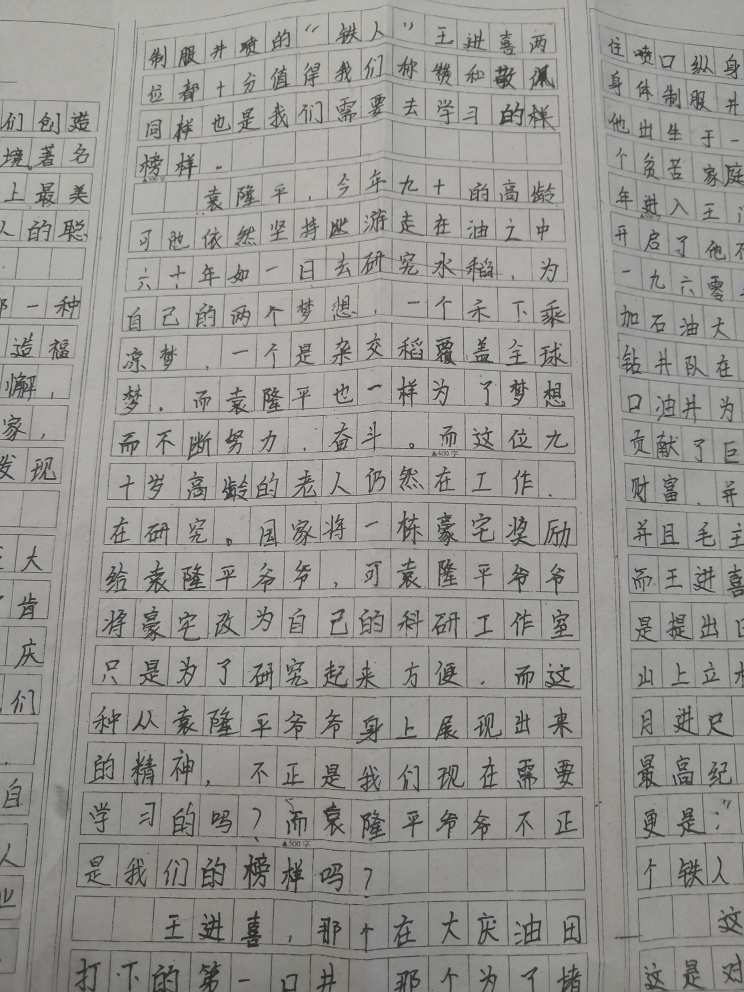 们创造
境。著名
上最美
人的聪
那一种
造福
懈，
家，
发现
大
肯
庆
们
自
人
业
制服井喷的“铁人”王进喜两
位都十分值得我们称赞和敬佩
同样也是我们需要去学习的样
榜样。
袁隆平，今年九十的高龄
可他依然坚持游走在油之中
六十年如一日去研究水稻，为
自己的两个梦想，一个禾下乘
凉梦，一个是杂交稻覆盖全球
梦。而袁隆平也一样为了梦想
而不断努力，奋斗。而这位九
▲400字
十岁高龄的老人仍然在工作，
在研究。国家将一栋豪宅奖励
给袁隆平爷爷，可袁隆平爷爷
将豪宅改为自己的科研工作室
只是为了研究起来方便，而这
种从袁隆平爷爷身上展现出来
的精神，不正是我们现在需要
学习的吗？而袁隆平爷爷不正
▲500字
是我们的榜样吗？
王进喜，那个在大庆油田
打下的第一口井，那个为了堵
住喷口纵身
身体制服井
他出生于一
个贫苦家庭
年进入玉
开启了他不
一九六零
加石油大
钻井队在
口油井为
贡献了巨
财富，并
并且毛主
而王进喜
是提出
山上立
月进尺
最高纪
更是：“
个铁人
这
这是对